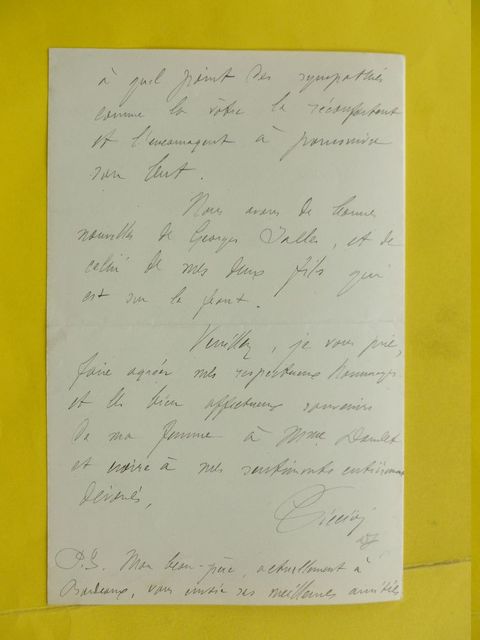 à quel point des sympathies
comme la vôtre le réconfortent
et l'encouragent à poursuivre
son but.
Nous avons de bonnes
nouvelles de Georges Salles, et de
celui de mes deux fils qui
est sur le front.
Veuillez, je vous prie,
faire agréer mes respectueux hommages
et les bien affectueux souvenirs
de ma femme à Mme Daudet
et croire à mes sentiments entièrement
dévoués,
P.S. Mon beau-père, actuellement à
Bordeaux, vous envoie ses meilleures amitiés